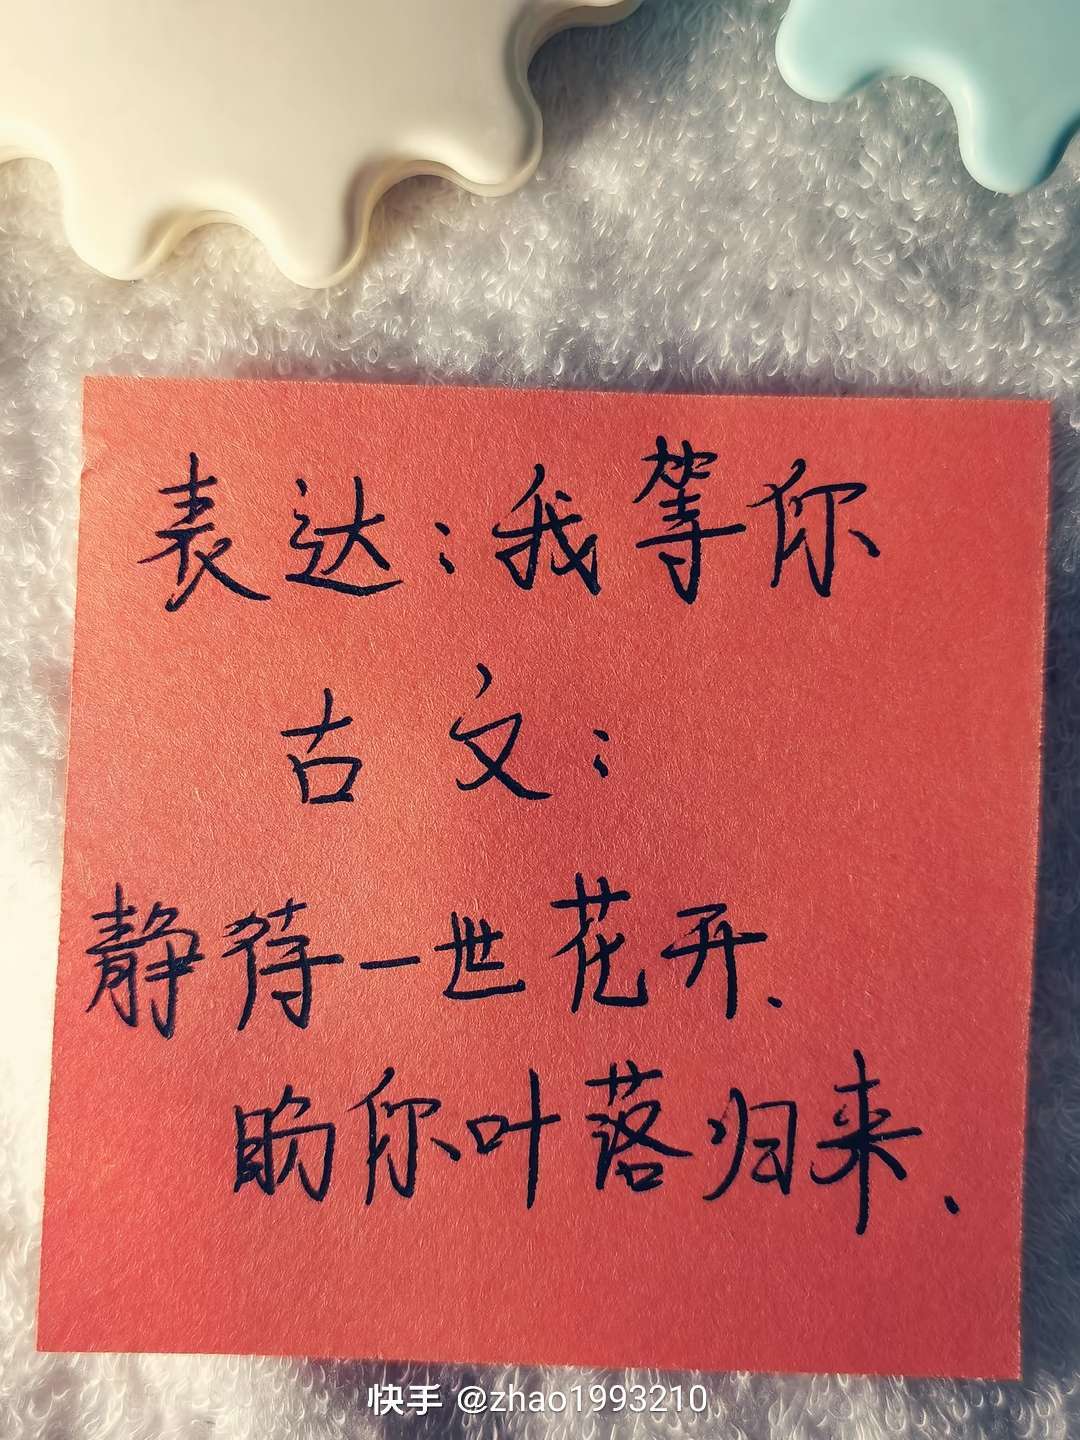 表达:我等你
古文:
静待一世花开.
盼你叶落归来.
快手 @zhao1993210